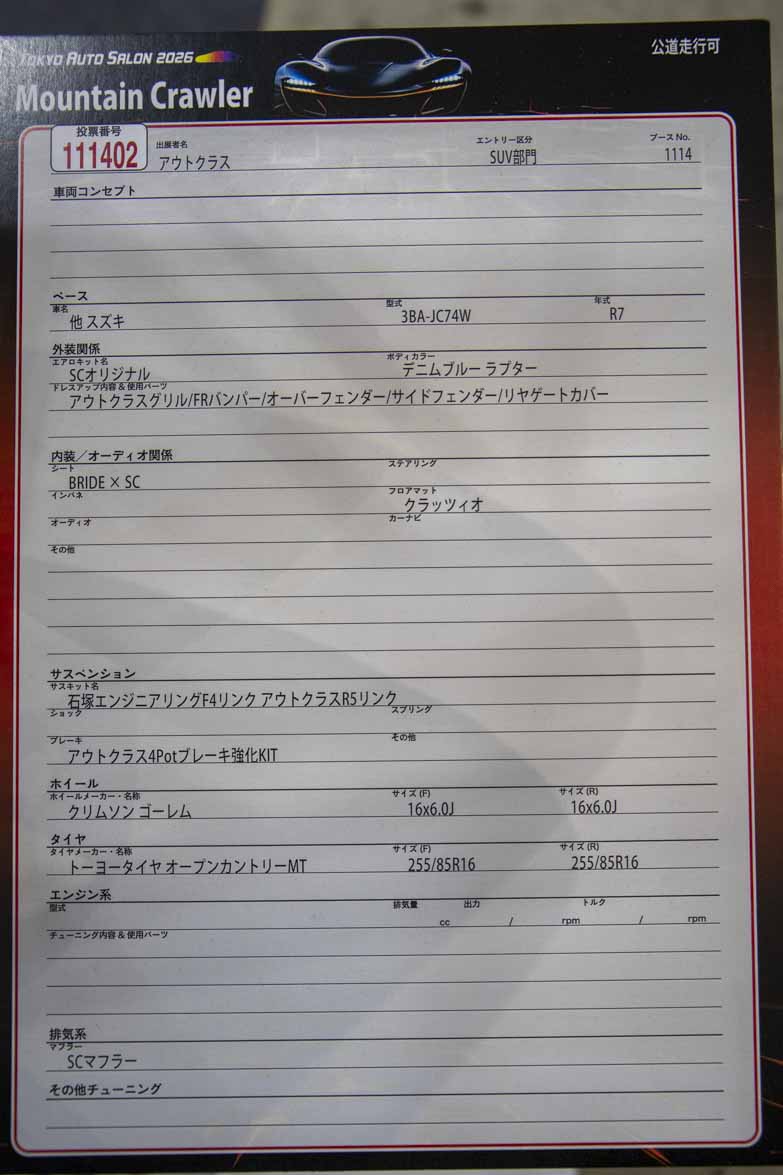 TOKYO AUTO SALON 2026
公道走行可
Mountain Crawler
投票番号
111402
出展者名
アウトクラス
エントリー区分
SUV部門
ブースNo.
1114
車両コンセプト
ベース
車名
他 スズキ
型式
3BA-JC74W
年式
R7
外装関係
エアロキット名
SCオリジナル
ボディカラー
デニムブルー ラプター
ドレスアップ内容 & 使用パーツ
アウトクラスグリル/FRバンパー/オーバーフェンダー/サイドフェンダー/リヤゲートカバー
内装／オーディオ関係
シート
BRIDE × SC
ステアリング
インパネ
フロアマット
クラッツィオ
オーディオ
カーナビ
その他
サスペンション
サスキット名
石塚エンジニアリングF4リンク アウトクラスR5リンク
ショック
スプリング
ブレーキ
アウトクラス4Potブレーキ強化KIT
その他
ホイール
ホイールメーカー・名称
クリムソン ゴーレム
サイズ (F)
16x6.0J
サイズ (R)
16x6.0J
タイヤ
タイヤメーカー・名称
トーヨータイヤ オープンカントリーMT
サイズ (F)
255/85R16
サイズ (R)
255/85R16
エンジン系
型式
排気量
cc
出力
/ rpm
トルク
/ rpm
チューニング内容 & 使用パーツ
排気系
マフラー
SCマフラー
その他チューニング